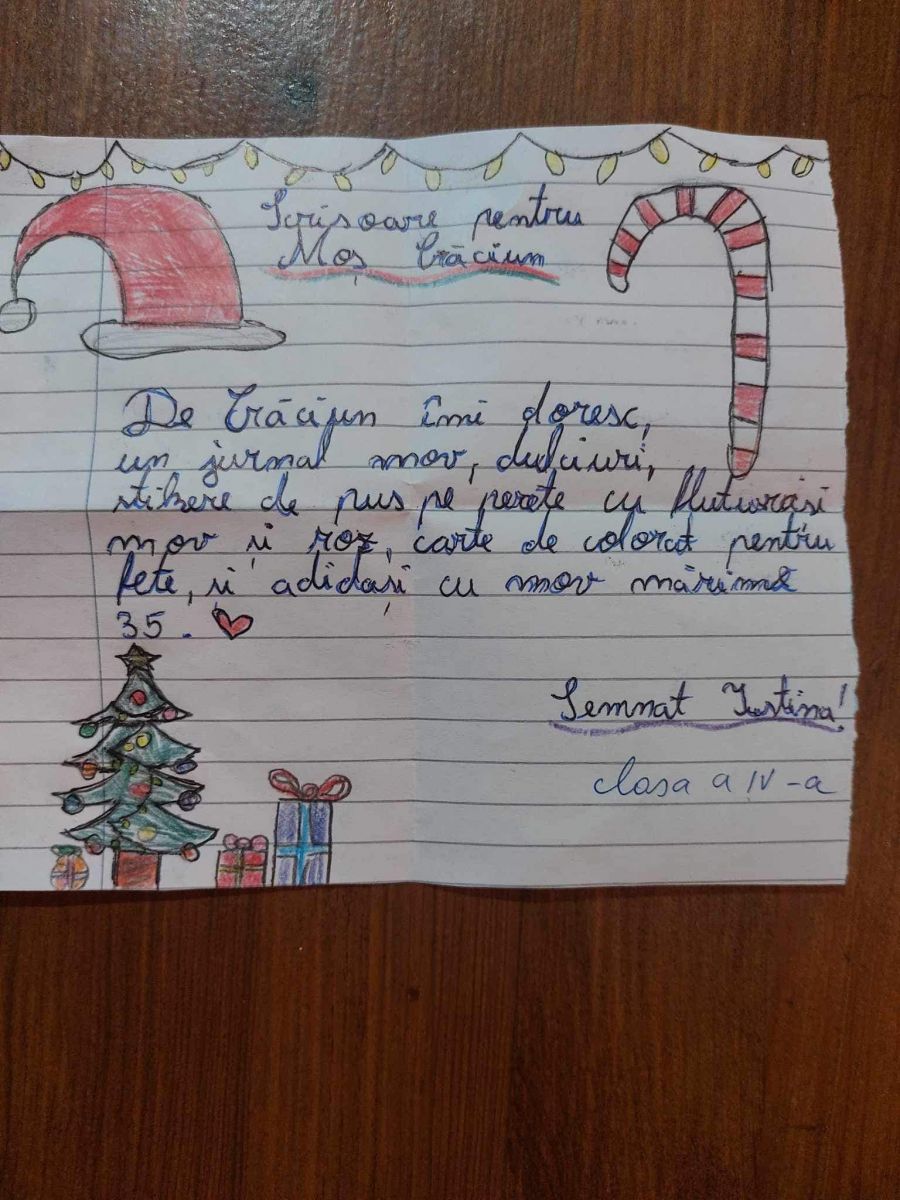 Scrisoare pentru
Moș Crăciun
De Crăciun îmi doresc,
un jurnal mov, dulciuri,
stikere de pus pe perete cu fluturași
mov și roz, carte de colorat pentru
fete, și adidași cu mov mărime
35.
Semnat Iustina!
clasa a IV-a